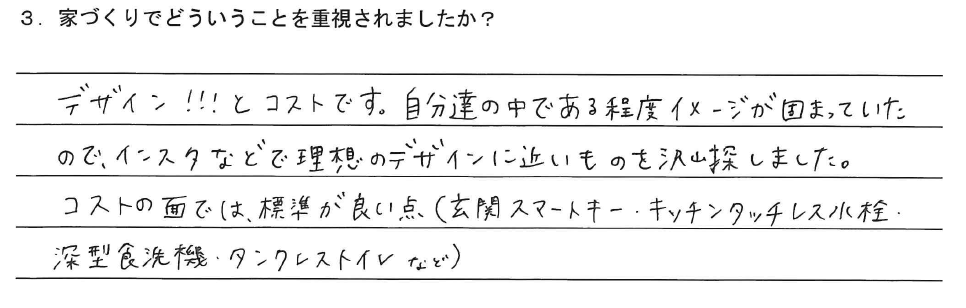 ３．家づくりでどういうことを重視されましたか？
デザイン!!!とコストです。自分達の中である程度イメージが固まっていた
ので、インスタなどで理想のデザインに近いものを沢山探しました。
コストの面では、標準が良い点（玄関スマートキー・キッチンタッチレス水栓・
深型食洗機・タンクレストイレなど）